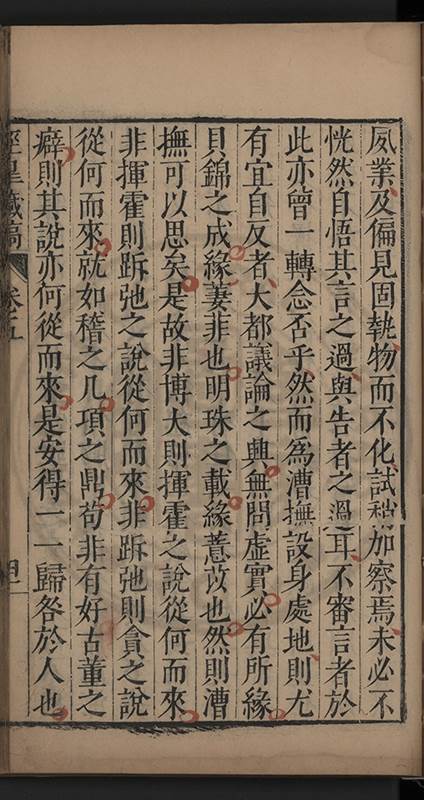 夙業及偏見固執物而不化試稍加察焉未必不
恍然自悟其言之過與告者之過耳不審言者於
此亦曾一轉念否乎然而為漕撫設身處地則尤
有宜自反者大都議論之興無問虛實必有所緣
貝錦之成緣萋非也明珠之載緣薏苡也然則漕
撫可以思矣是故非博大則揮霍之說從何而來
非揮霍則跅弛之說從何而來非跅弛則貪之說
從何而來就如稽之几項之鼎苟非有好古董之
癖則其說亦何從而來是安得一一歸咎於人也
涇皐藏稿
卷之五